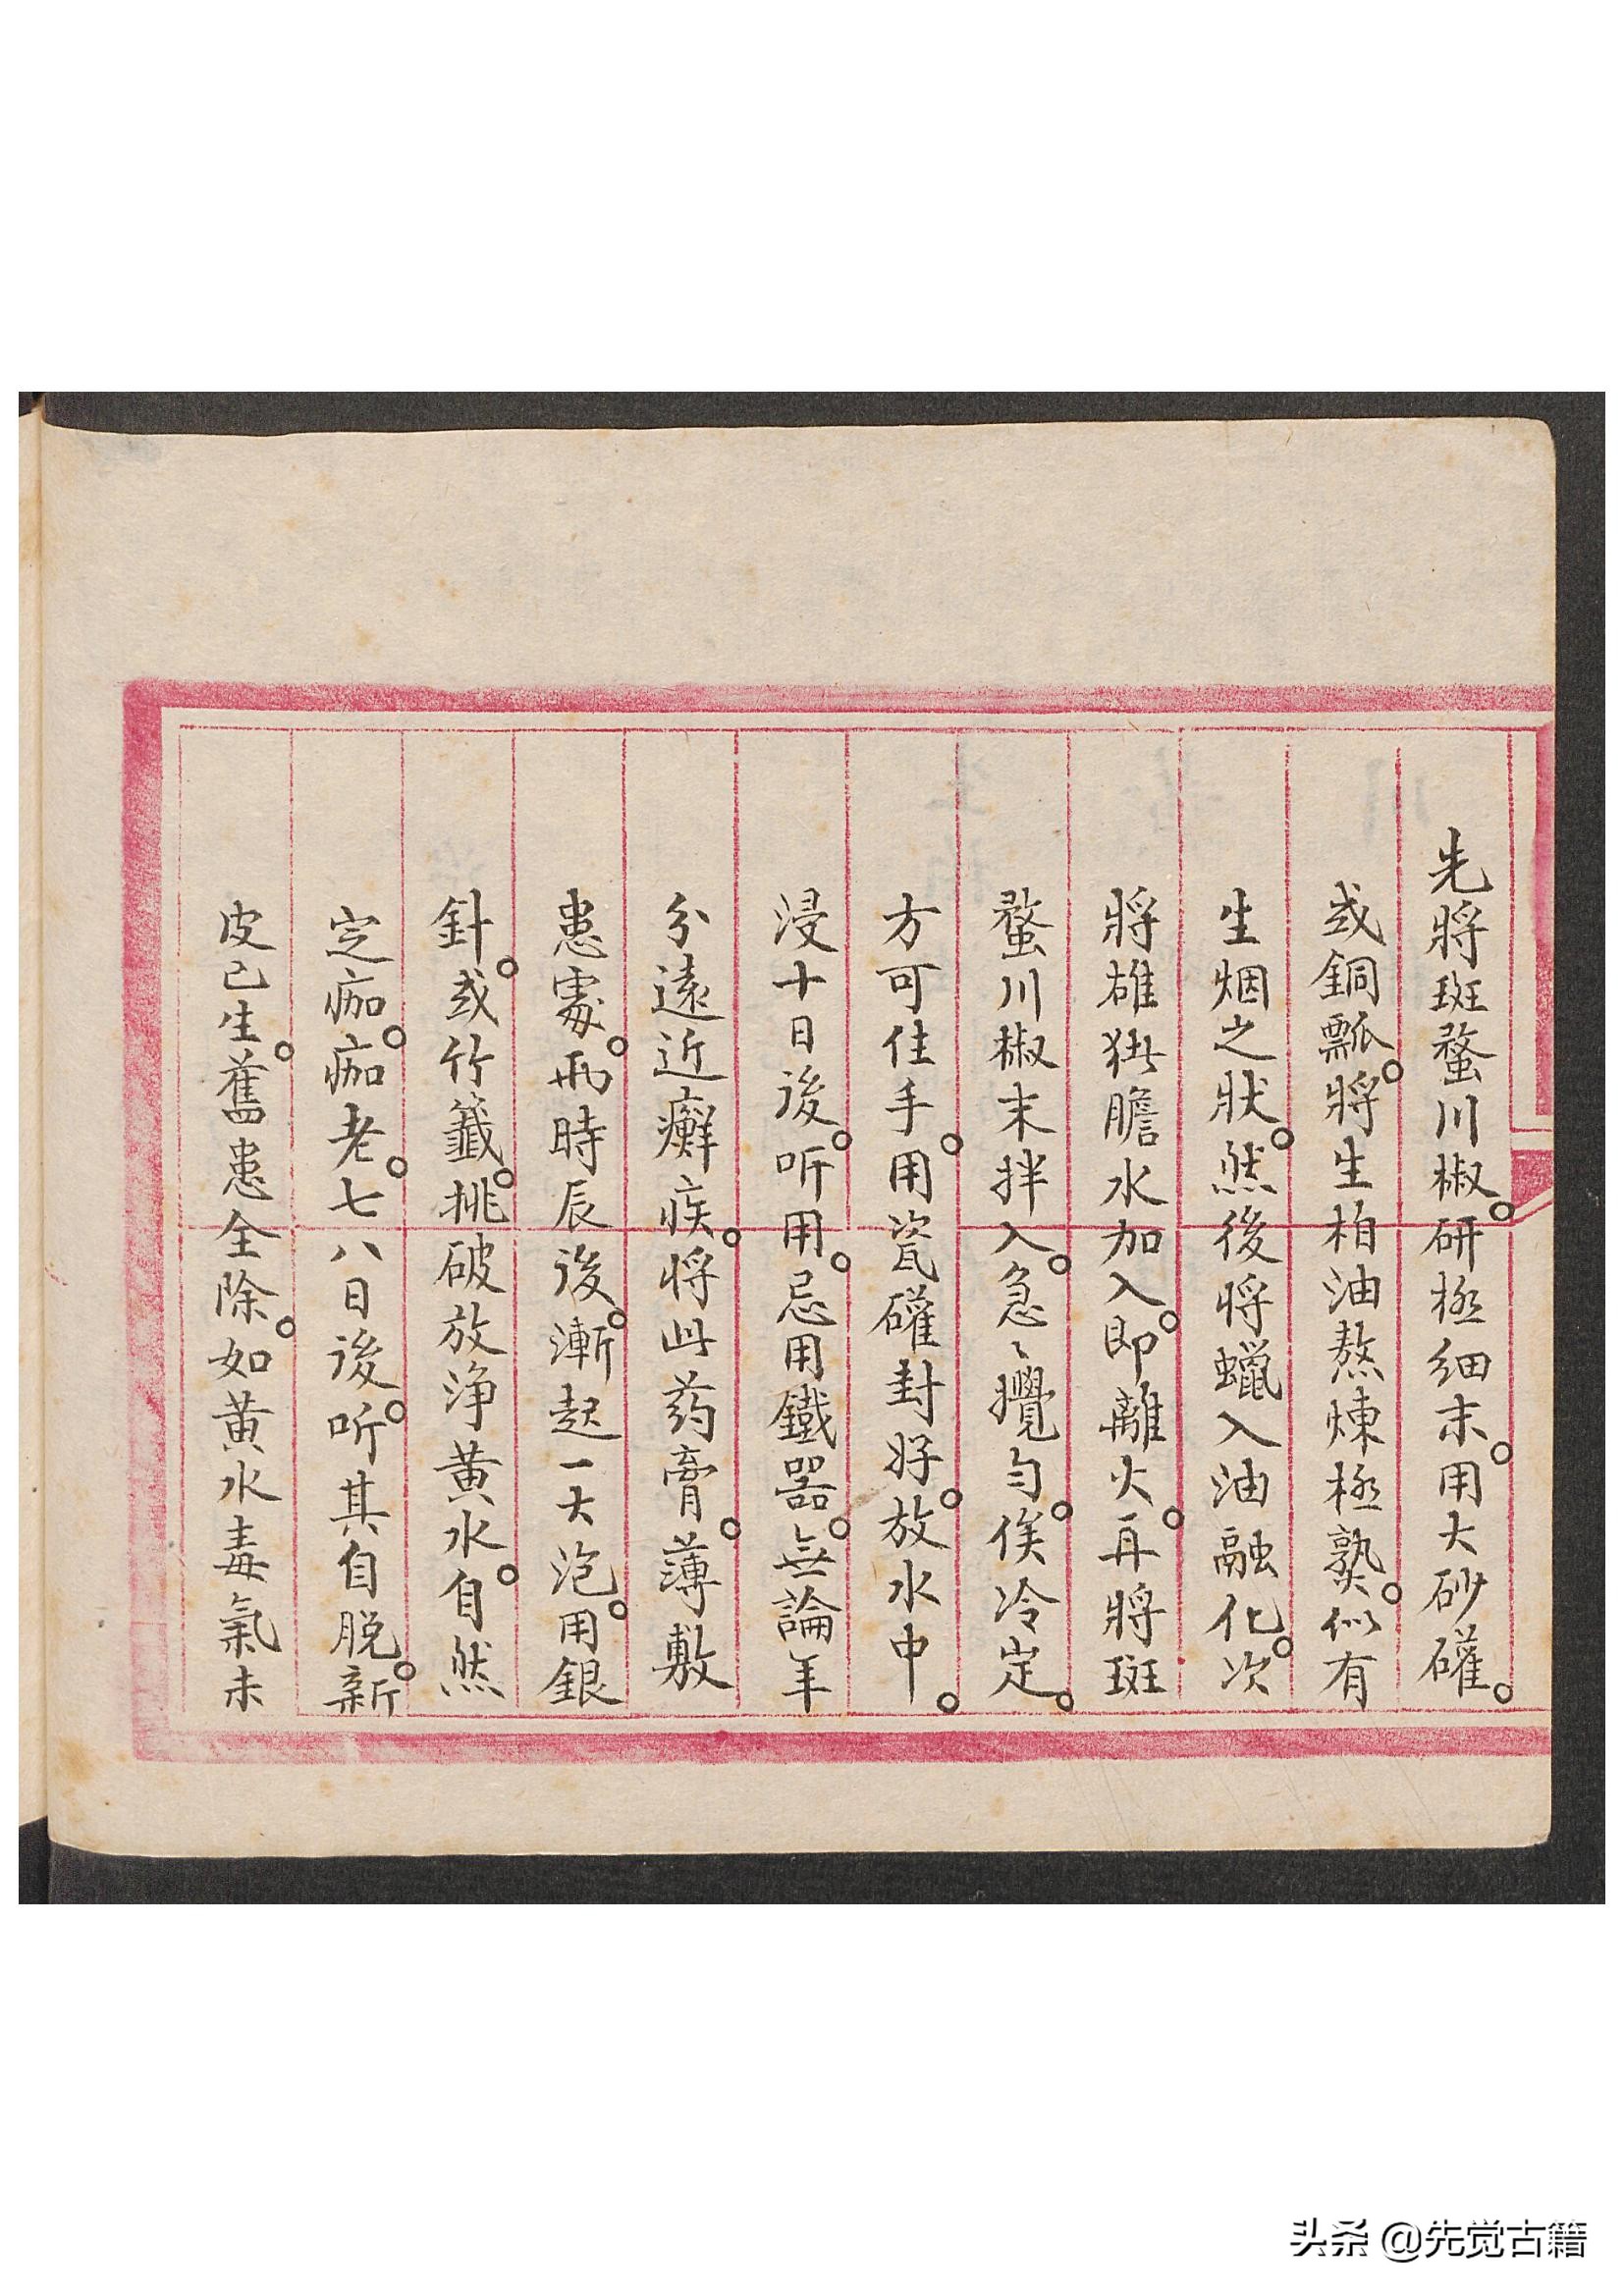 先將斑蝥川椒。研極細末。用大砂礶。
或銅瓢。將生柏油熬煉極熟。似有
生烟之狀。然後將蠟入油融化。次
將雄猪膽水加入。即離火。再將斑
蝥川椒末拌入。急〻攪勻。俟冷定。
方可住手。用瓷礶封好。放水中。
浸十日後。听用。忌用鐵器。無論年
分遠近癬疾。將此药膏。薄敷
患處。兩時辰後。漸起一大泡。用銀
針。或竹籤。挑破放浄黄水。自然
定痂。痂老。七八日後。听其自脱。新
皮已生。舊患全除。如黄水毒氣未
头条 @先觉古籍